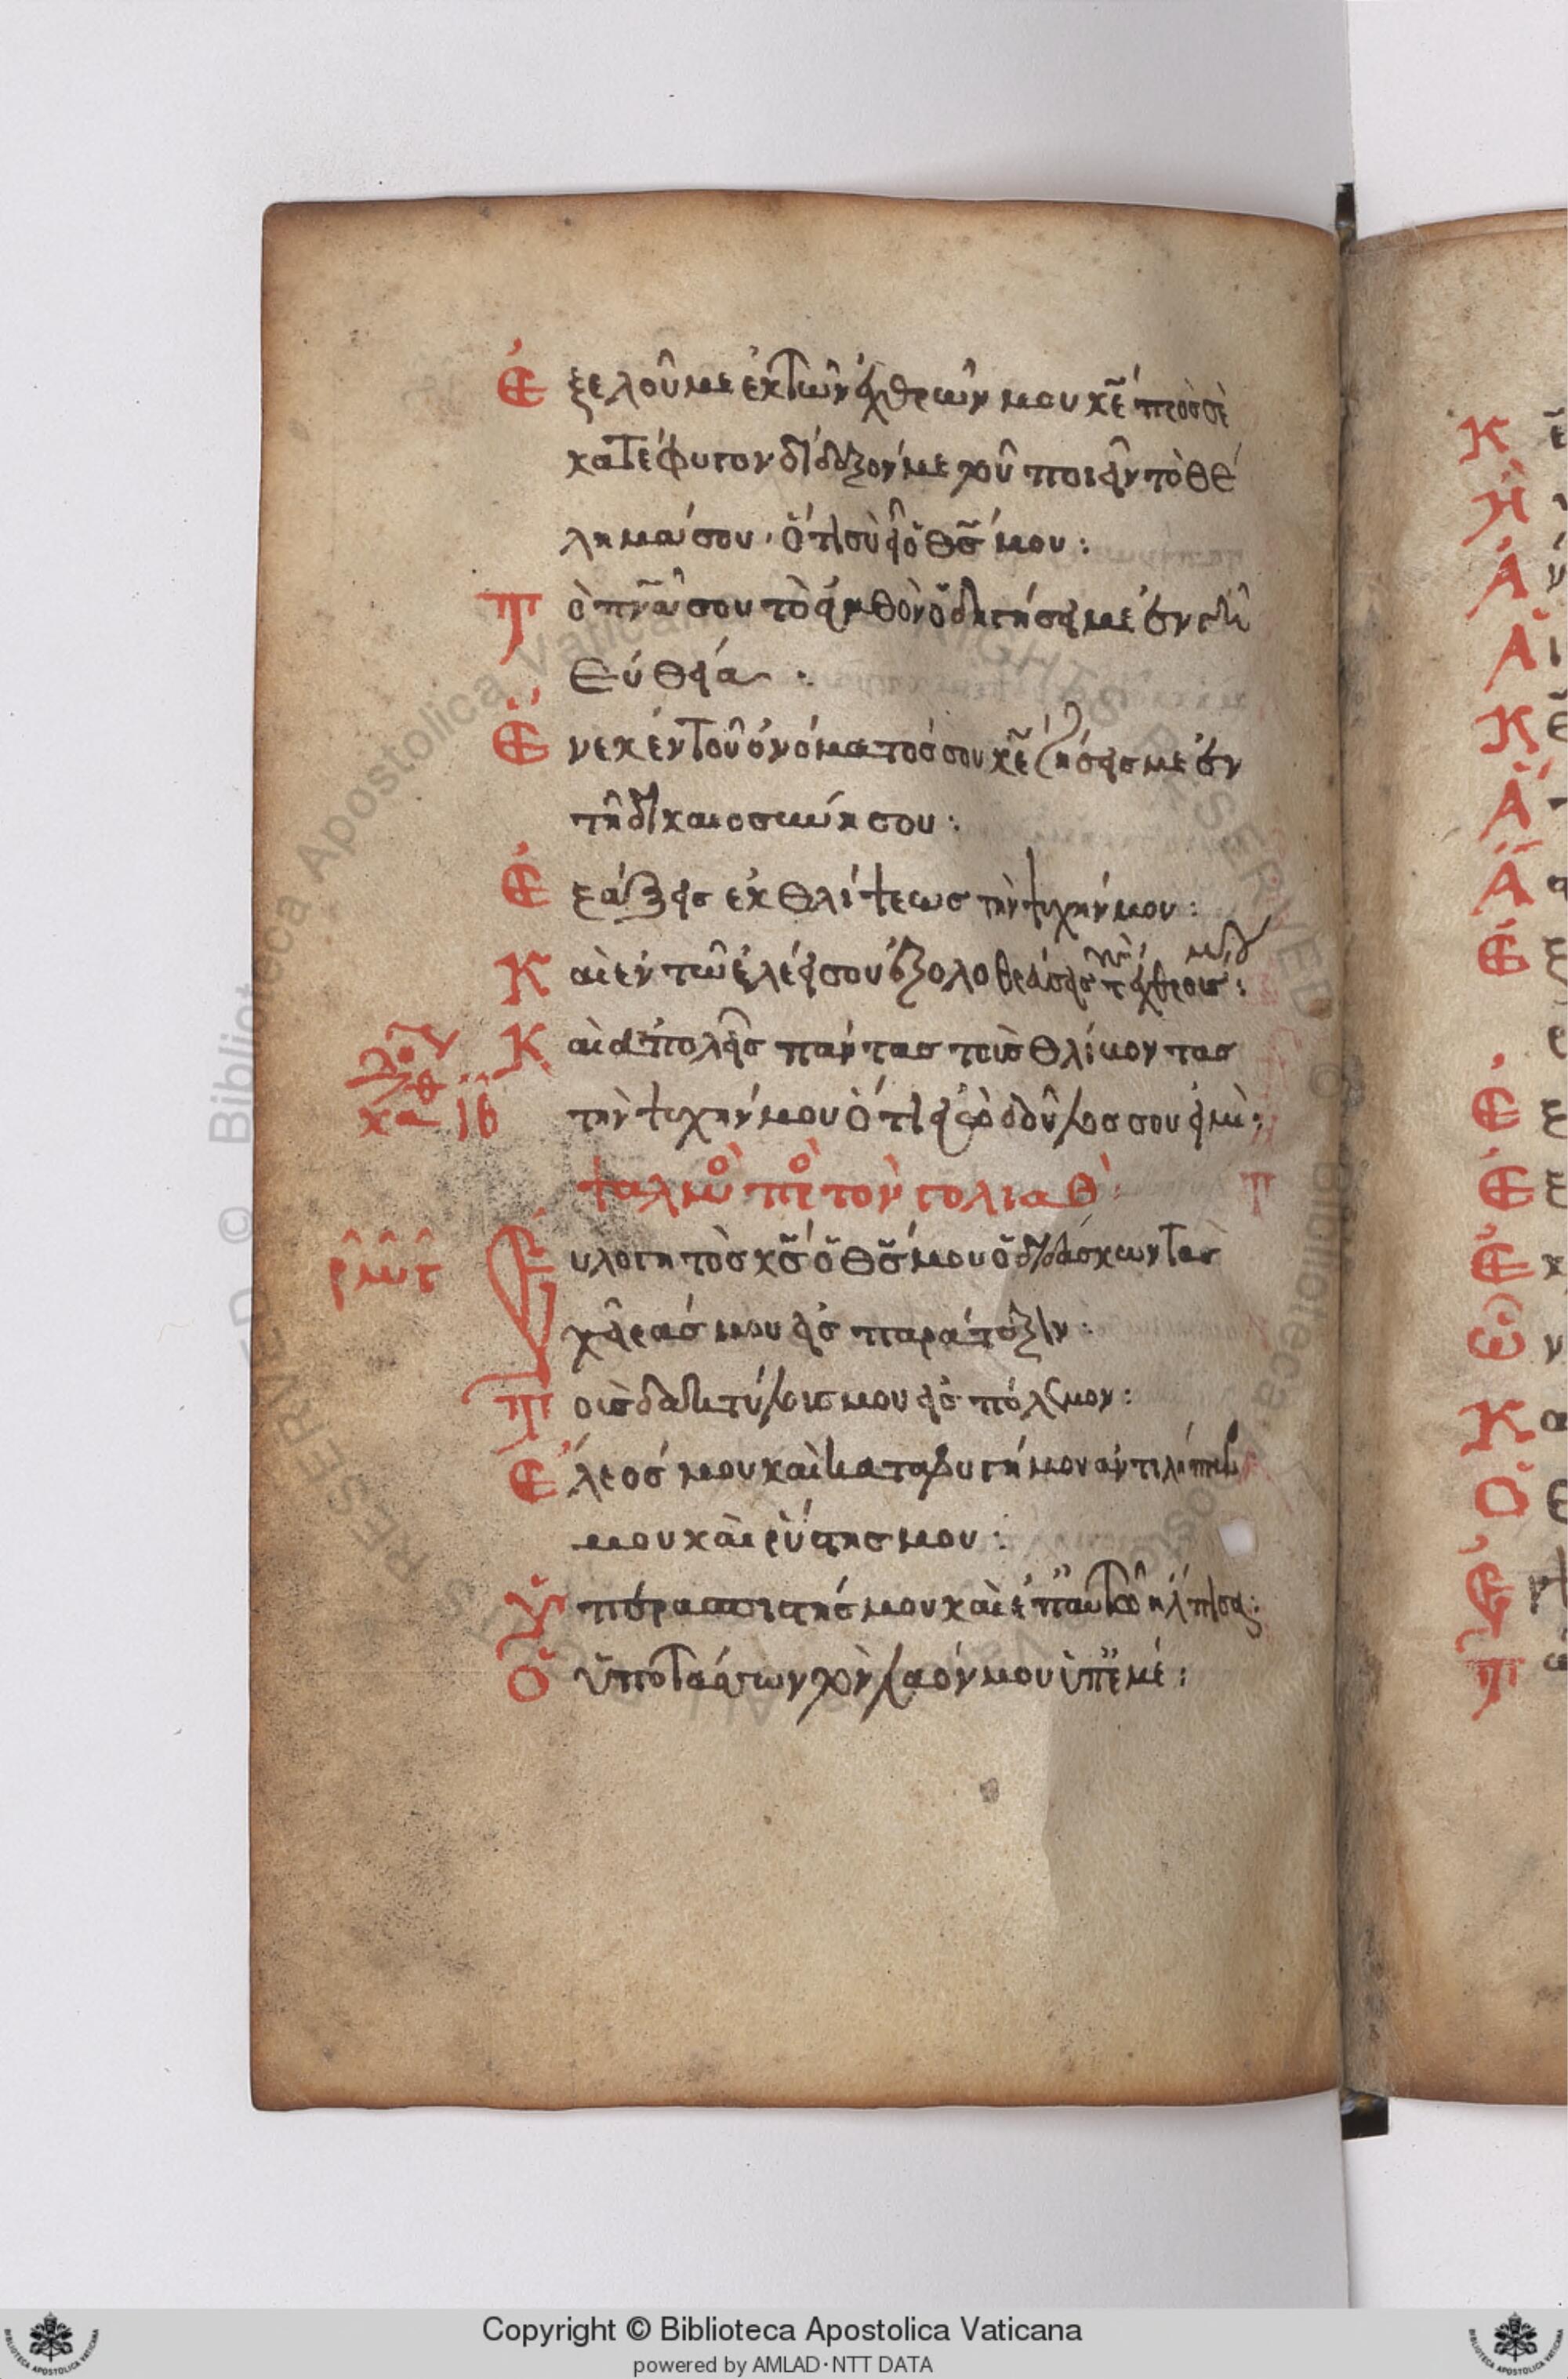 Ἐξελοῦ με ἐκ τῶν ἐχθρῶν μου κε πρὸς σὲ
κατέφυγον δίδαξόν με τοῦ ποιεῖν τὸ θέ
λημά σου, ὅτι σὺ εἶ ὁ θς μου:
Τὸ πνα σου τὸ ἀγαθὸν ὁδηγήσει με ἐν γῆ
εὐθεία:
Ἕνεκεν τοῦ ὀνόματός σου κε ζήσεις με ἐν
τῆ δικαιοσύνη σου:
Ἐξάξεις ἐκ θλίψεως τὴν ψυχήν μου:
Καὶ ἐν τῶ ἐλέει σου ἐξολοθρεύσεις τ ἐχθρούς μου:
Καὶ ἀπολεῖς πάντας τοὺς θλίβοντας
τὴν ψυχήν μου ὅτι ἐγὼ δοῦλος σου εἰμὶ:
ιβ
ψαλμὸ πρ τὸν γολιαθ:
ρμγ
Εὐλογητὸς κς ὁ θς μου ὁ διδάσκων τὰς
χεῖράς μου εἰς παράταξιν:
Τοὺς δακτύλους μου εἰς πόλεμον:
Ἔλεός μου καὶ καταφυγή μου ἀντιλήπτωρ
μου καὶ ῥύστης μου:
Ὑπερασπιστής μου καὶ ἐπ αὐτῶ ἤλπισα:
Ὁ ὑποτάσσων τὸν λαόν μου ὑπ ἐμέ:
Copyright © Biblioteca Apostolica Vaticana
powered by AMLAD·NTT DATA